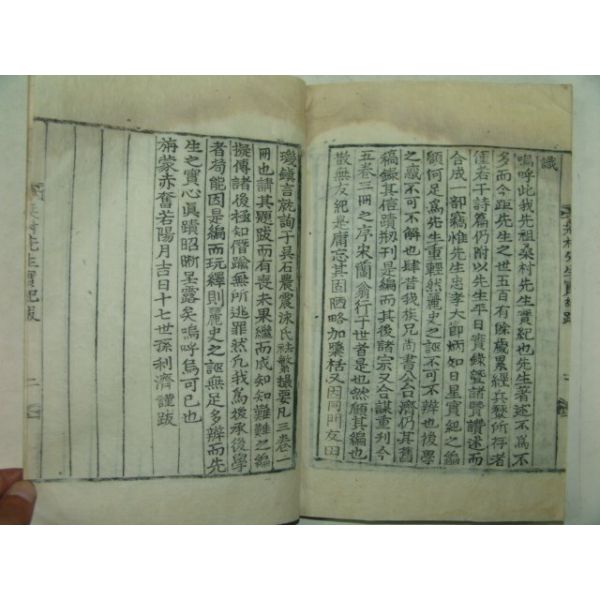 識
嗚呼此我先祖桑村先生實紀也先生著述不爲不
多而今距先生之世五百有餘歲累經兵燹所存者
僅若干詩篇仍附以先生平日實錄曁諸賢讚述而
合成一部竊惟先生忠孝大節炳如日星實紀之編
顧何足爲先生重輕然麗史之誣不可不辨也後學
之惑不可不解也肆昔我族兄尙書公公濟仍其舊
稿錄其信蹟剏刊是編而其後諸宗又合謀重刊今
五卷三冊之序宋蘭翁行于世者是也然顧其編也
散無友紀是庸忘其固陋略加檃栝又因同門友田
璣鎭言就詢于吳石農震泳氏祛繁撮要凡三卷一
冊也請其題跋而有喪未果繼而成知知難難之編
擬傳諸後極知僭踰無所逃罪然凡我爲後承後學
者苟能因是編而玩繹則麗史之誣無足多辨而先
生之實心眞蹟昭晰呈露矣嗚呼烏可已也
旃蒙赤奮若陽月吉日十七世孫利濟謹跋
桑村先生實紀跋
一
桑村先生實紀跋
二